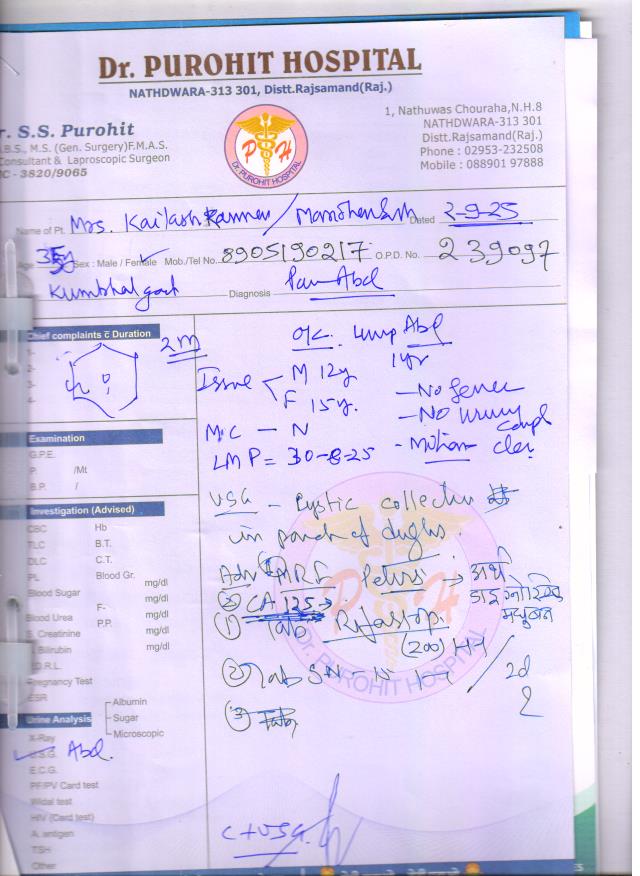 Dr. PUROHIT HOSPITAL
NATHDWARA-313 301, Distt.Rajsamand(Raj.)
r. S.S. Purohit
.B.S., M.S. (Gen. Surgery)F.M.A.S.
Consultant & Laproscopic Surgeon
C - 3820/9065
P H
Dr. PUROHIT HOSPITAL
1, Nathuwas Chouraha,N.H.8
NATHDWARA-313 301
Distt.Rajsamand(Raj.)
Phone : 02953-232508
Mobile : 088901 97888
Name of Pt. Mrs. Kailash Dated 2-9-25
Age 35y Sex : Male / Female Mob./Tel No. 8905190217 O.P.D. No. 239097
Diagnosis Pain Abd
Chief complaints c̄ Duration
1-
2-
3-
4-
2m
O/E. Lump Abd
1yr
Issue M 12y
F 15y.
- No fever
- No urinary compl
M.C - N
LMP = 30-8-25 - Motion clear
Examination
G.P.E.
P. /Mt
B.P. /
Investigation (Advised)
CBC Hb
TLC B.T.
DLC C.T.
PL Blood Gr.
Blood Sugar mg/dl
F- mg/dl
Blood Urea P.P. mg/dl
S. Creatinine mg/dl
. Bilirubin mg/dl
.D.R.L.
Pregnancy Test
ESR
Urine Analysis
Albumin
Sugar
Microscopic
X-Ray
U.S.G. Abd.
E.C.G.
PF/PV Card test
Widal test
HIV (Card test)
A. antigen
TSH
Other
USG - Cystic collection
in pouch of
Adv ① MRI Pelvis →
② CA 125 →
① Tab
(200)
② Tab
2d
③ Tab
C + USG.